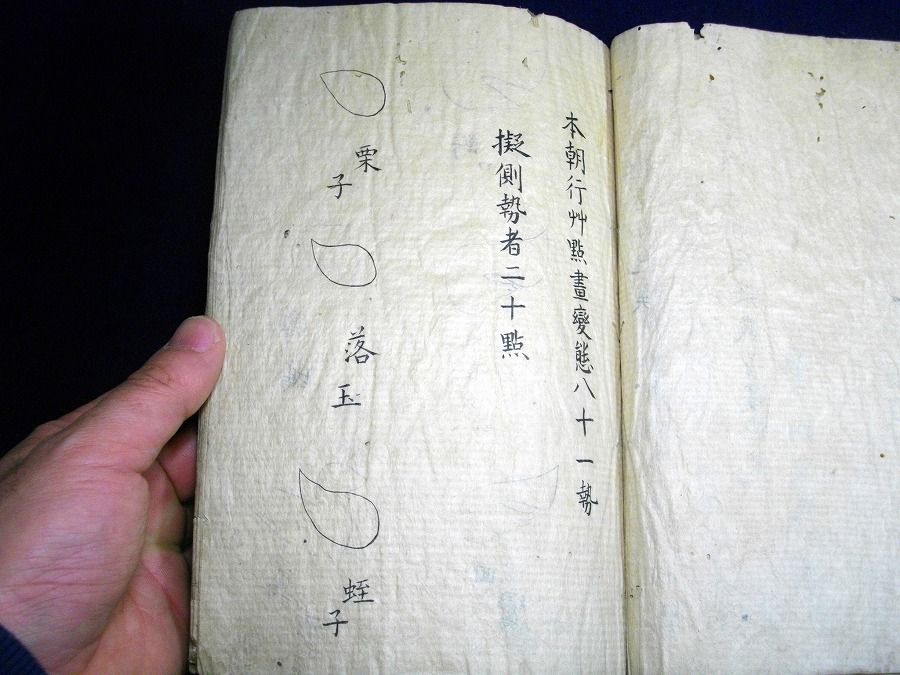 本朝行艸點畫變態八十一勢
擬側勢者二十點
栗子
落玉
蛭子